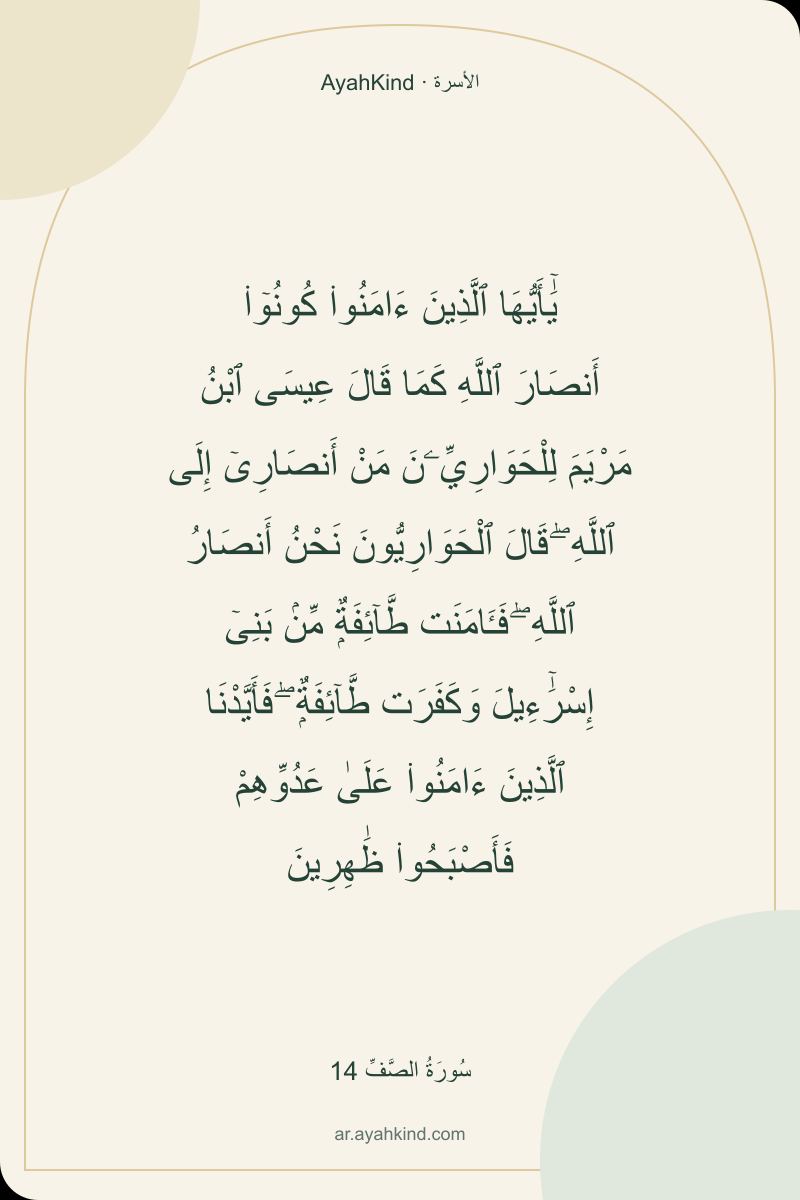 الأسرة · AyahKind
يَٰٓأَيُّهَا ٱلَّذِينَ ءَامَنُوا۟ كُونُوٓا۟
أَنصَارَ ٱللَّهِ كَمَا قَالَ عِيسَى ٱبْنُ
مَرْيَمَ لِلْحَوَارِيِّـۧنَ مَنْ أَنصَارِىٓ إِلَى
ٱللَّهِ ۖ قَالَ ٱلْحَوَارِيُّونَ نَحْنُ أَنصَارُ
ٱللَّهِ ۖ فَـَٔامَنَت طَّآئِفَةٌۭ مِّنۢ بَنِىٓ
إِسْرَٰٓءِيلَ وَكَفَرَت طَّآئِفَةٌۭ ۖ فَأَيَّدْنَا
ٱلَّذِينَ ءَامَنُوا۟ عَلَىٰ عَدُوِّهِمْ
فَأَصْبَحُوا۟ ظَٰهِرِينَ
سُورَةُ الصَّفِّ 14
ar.ayahkind.com